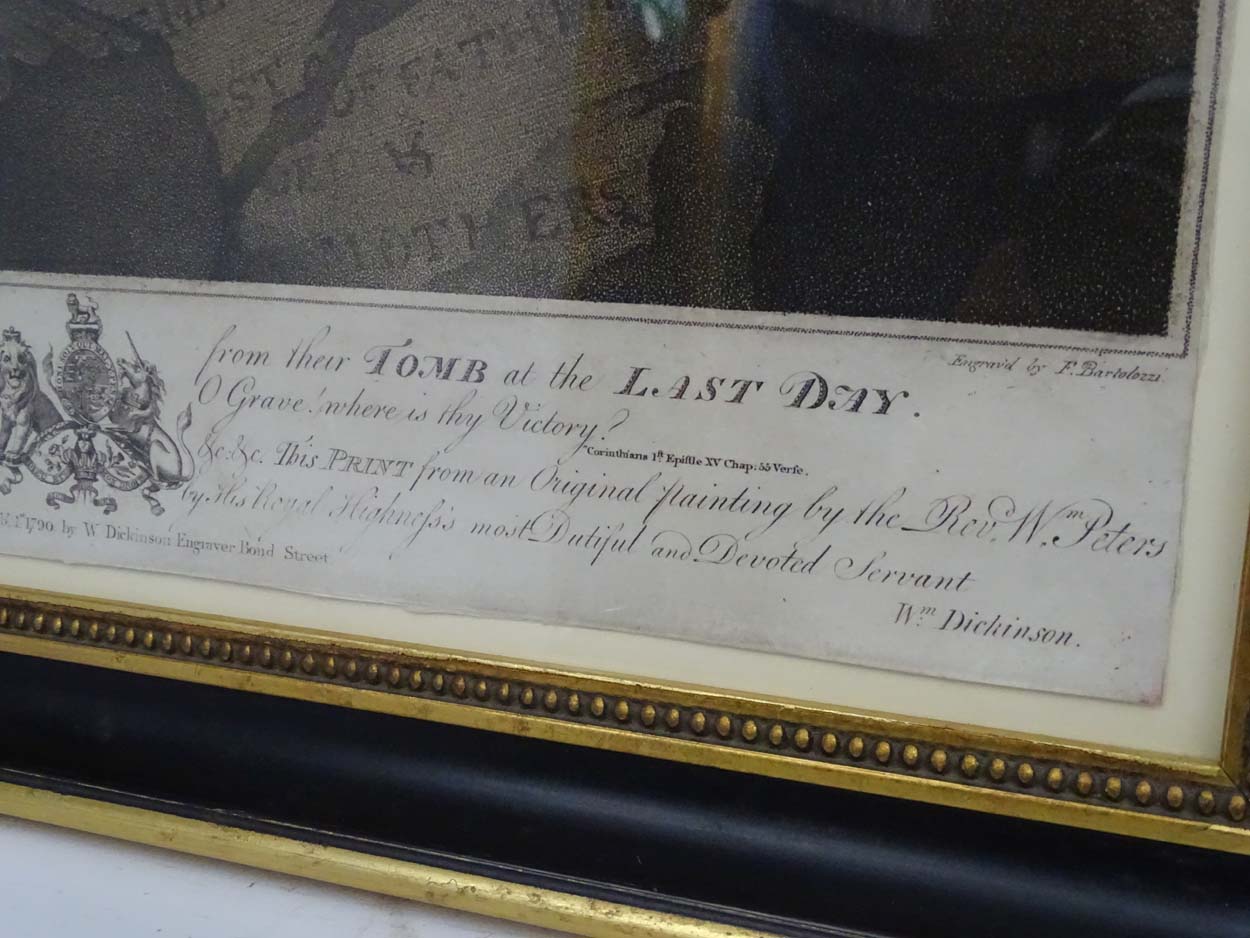 OF FATHE
MOTHERS
Engrav'd by F. Bartolozzi
from their TOMB at the LAST DAY.
O Grave! where is thy Victory?
Corinthians 1st Epistle XV Chap: 55 Verse.
&c. &c. This PRINT from an Original Painting by the Revd. Wm. Peters
by His Royal Highness's most Dutiful and Devoted Servant
1st 1790 by W Dickinson Engraver Bond Street
Wm. Dickinson.